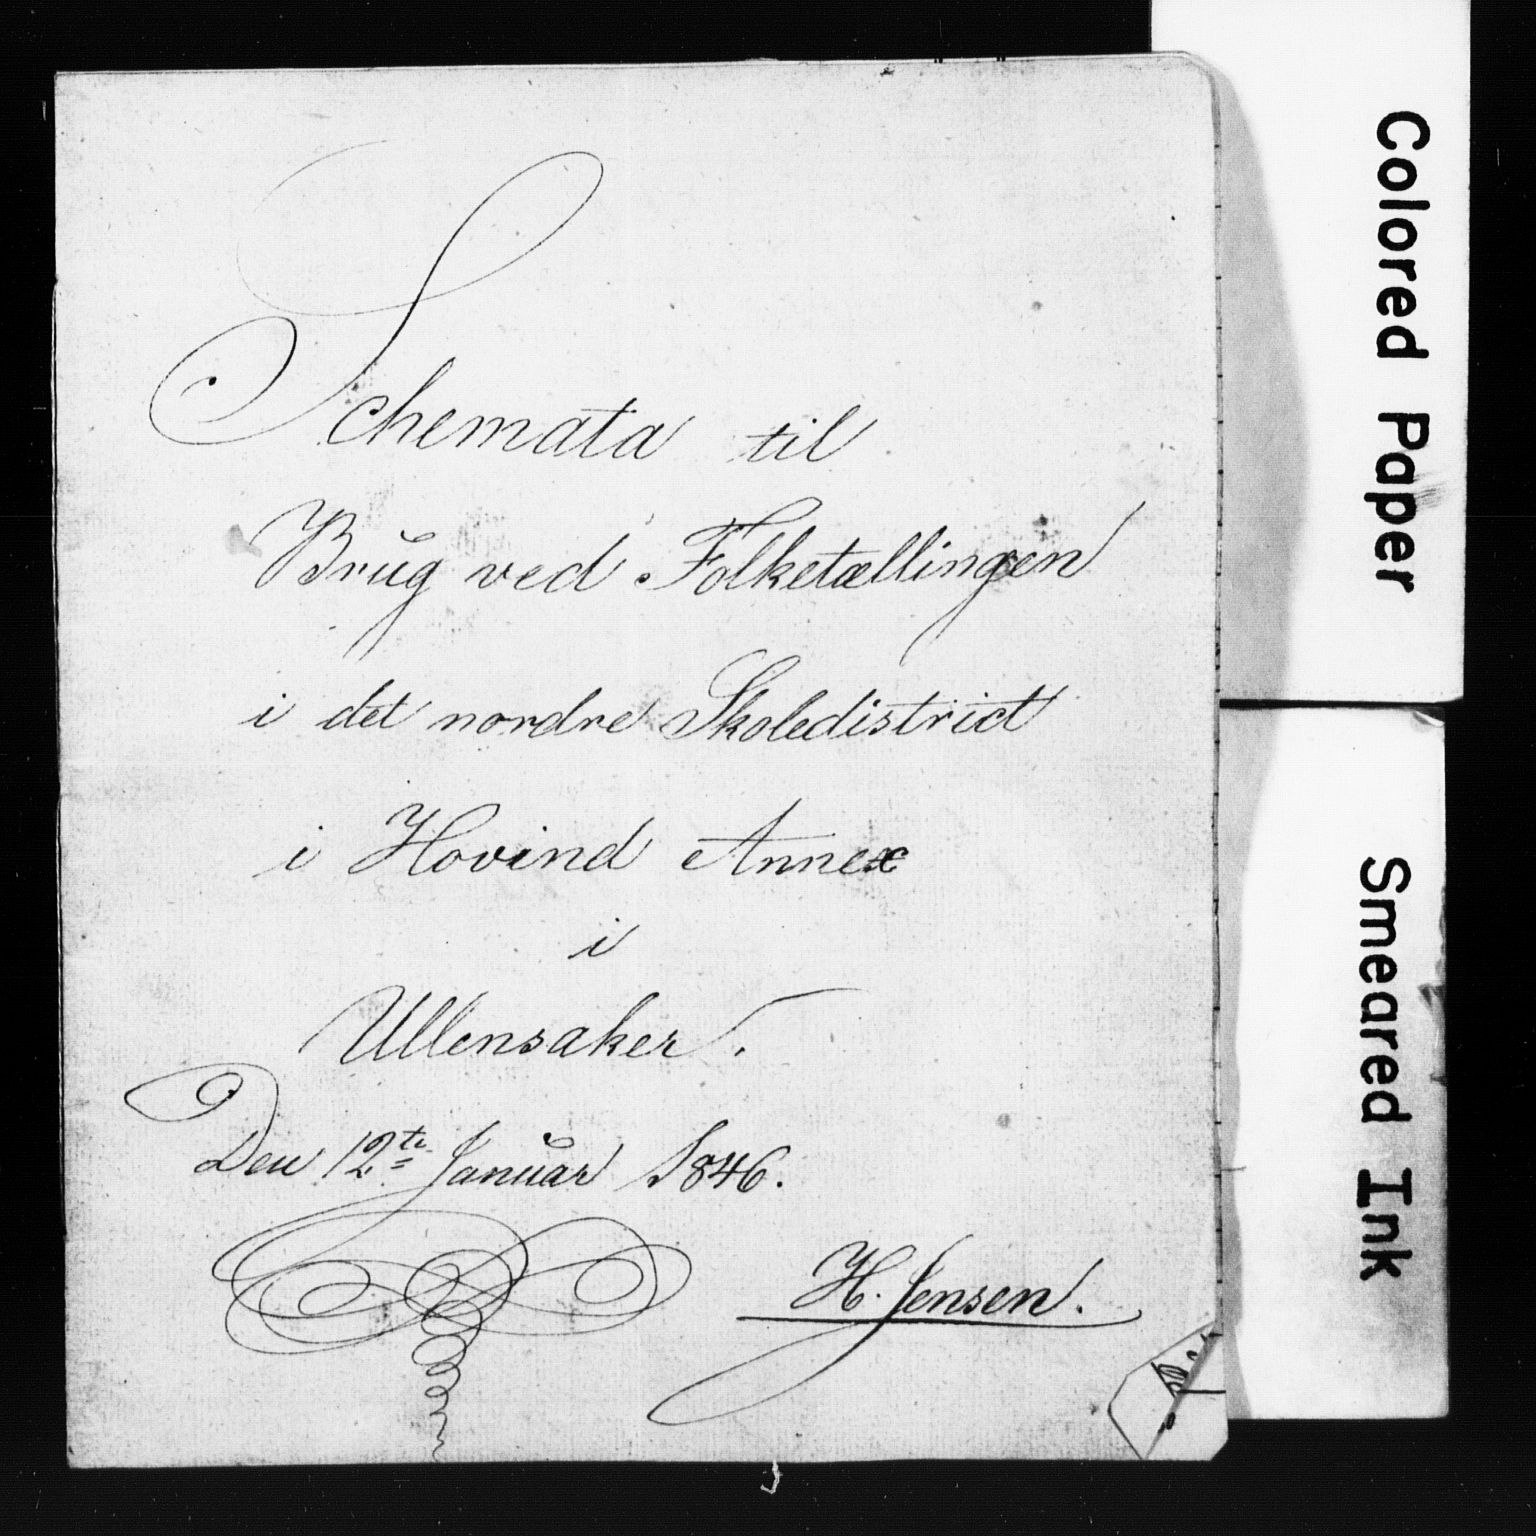 Schemata til
Brug ved Folketællingen
i det nordre Skoledistrict
i Hovind Annex
i
Ullensaker.
Den 12te Januar 1846.
H. Jensen.
Colored Paper
Smeared Ink